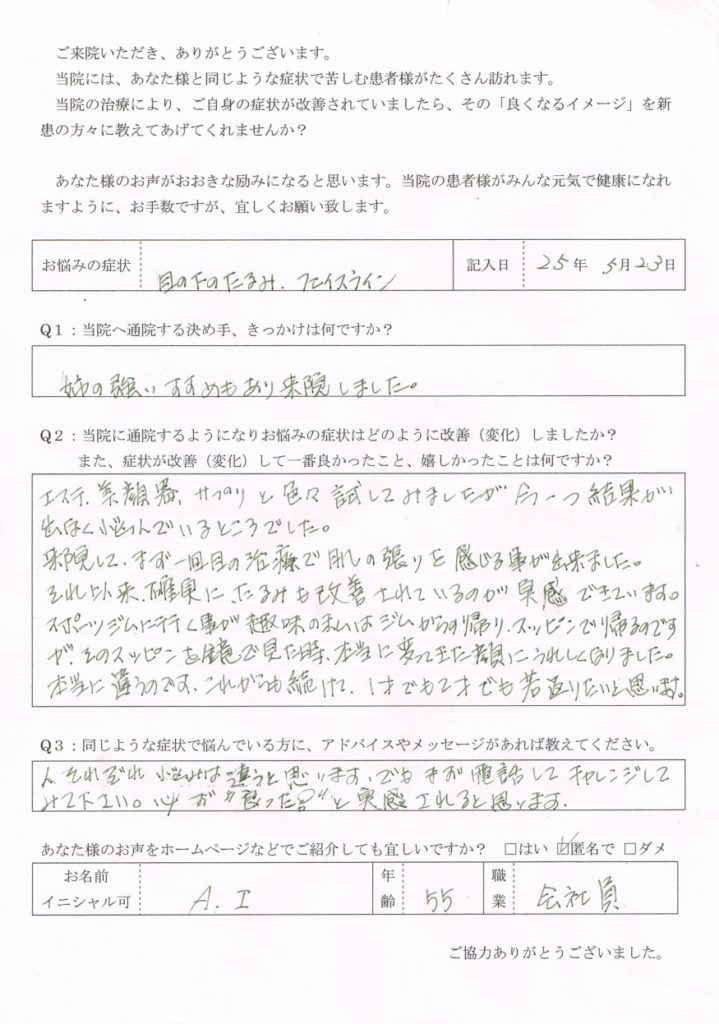 ご来院いただき、ありがとうございます。
当院には、あなた様と同じような症状で苦しむ患者様がたくさん訪れます。
当院の治療により、ご自身の症状が改善されていましたら、その「良くなるイメージ」を新
患の方々に教えてあげてくれませんか？
あなた様のお声がおおきな励みになると思います。当院の患者様がみんな元気で健康になれ
ますように、お手数ですが、宜しくお願い致します。
お悩みの症状 目の下のたるみ．フェイスライン 記入日 25年 5月23日
Q１：当院へ通院する決め手、きっかけは何ですか？
姉の強いすすめもあり来院しました。
Q２：当院に通院するようになりお悩みの症状はどのように改善（変化）しましたか？
また、症状が改善（変化）して一番良かったこと、嬉しかったことは何ですか？
エステ、美顔器、サプリと色々試してみましたが今一つ結果が
出ほく悩んでいるところでした。
来院して、まず一回目の治療で肌の張りを感じる事が出来ました。
それ以来、確実に、たるみも改善されているのが実感できています。
スポーツジムに行く事が趣味の私はジムからの帰り、スッピンで帰るのです
が、そのスッピンを鏡で見た時、本当に変ってきた顔にうれしくなりました。
本当に違うのです、これからも続けて、1才でも2才でも若返りたいと思います。
Q３：同じような症状で悩んでいる方に、アドバイスやメッセージがあれば教えてください。
人それぞれ悩みは違うと思います、でもまず電話してチャレンジして
みて下さい。必ず〝変った!?〟と実感されると思います．
あなた様のお声をホームページなどでご紹介しても宜しいですか？ □はい ☑匿名で □ダメ
お名前 イニシャル可 A．I 年齢 55 職業 会社員
ご協力ありがとうございました。